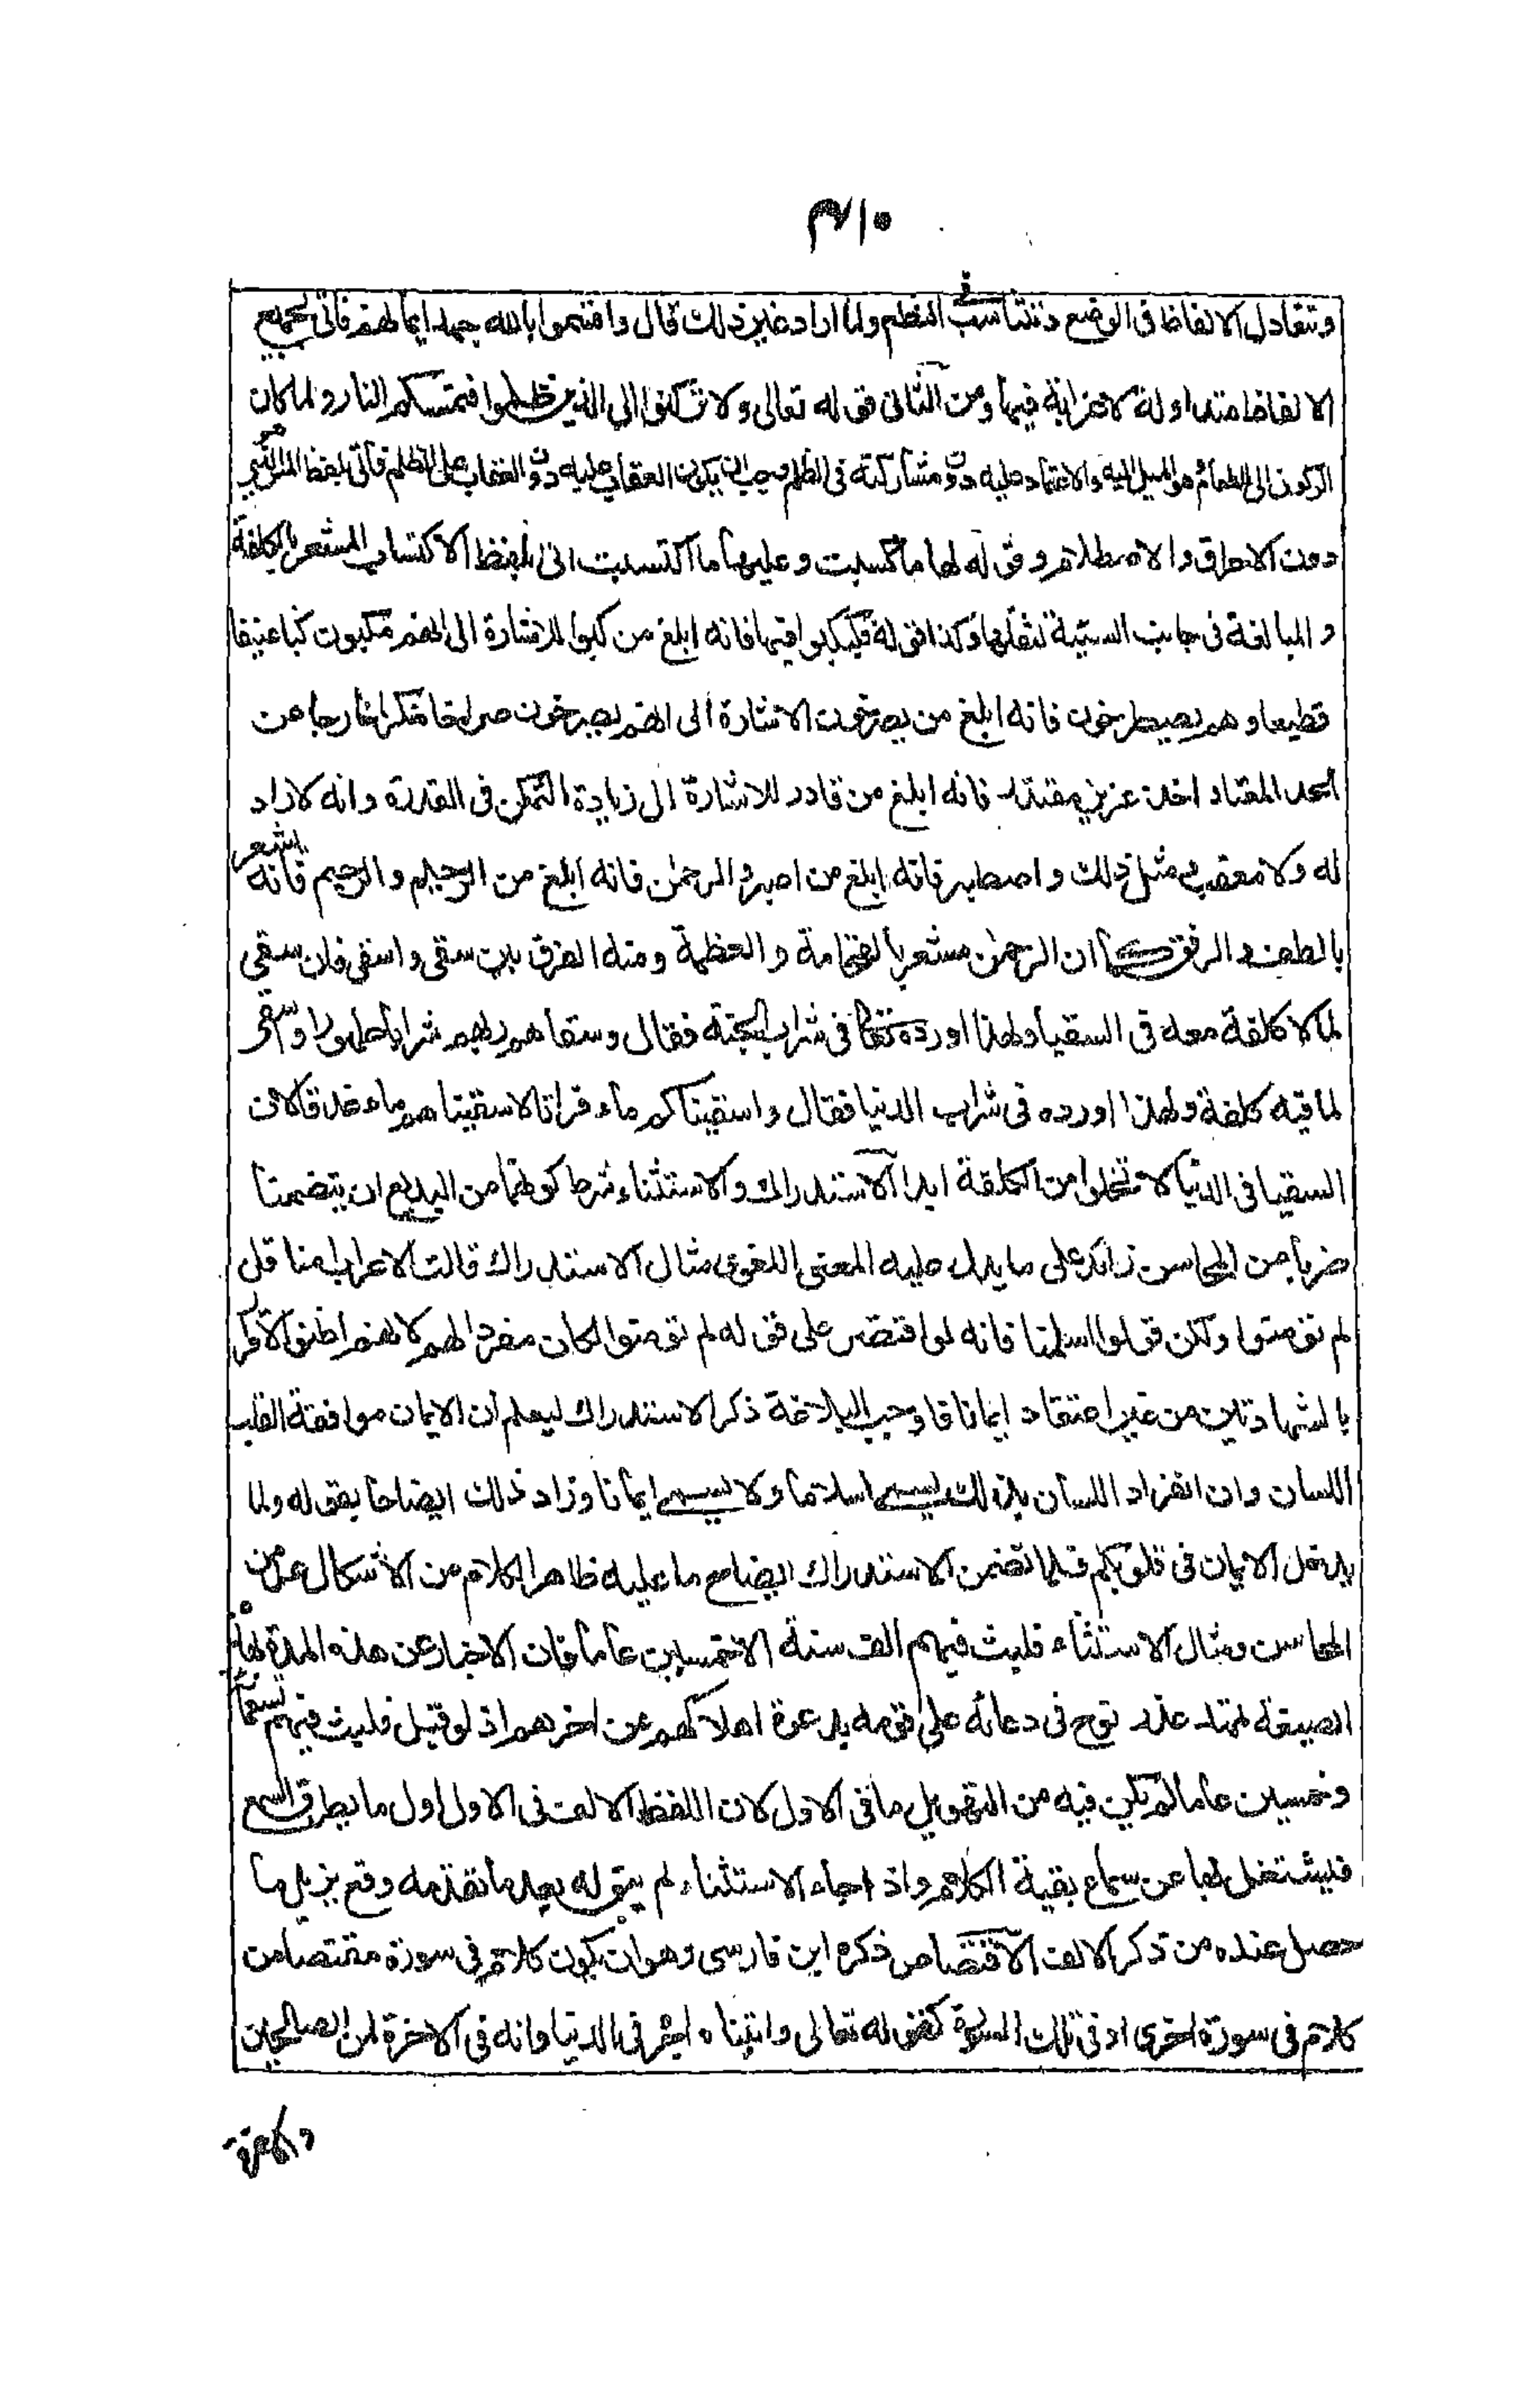 ٣١٥
وتتعادل الالفاظ فى الوضع وتتناسب فى النظم ولما اراد غير ذلك قال واقسموا بالله جهد ايمانهم فاتى بجميع
الالفاظ متداولة لا غرابة فيها ومن الثانى قوله تعالى ولا تركنوا الى الذين ظلموا فتمسكم النار ولما كان
الركون الى الظالم هو الميل اليه والاعتماد عليه دون مشاركته فى الظلم وجب ان يكون العقاب عليه دون العقاب على الظلم فاتى بلفظ المس الذى هو
دون الاحراق والاصطلام وقوله لها ما كسبت وعليها ما اكتسبت اتى بلفظ الاكتساب المشعر بالكلفة
والمبالغة فى جانب السيئة لثقلها وكذا قوله فكبكبوا فيها فانه ابلغ من كبوا للاشارة الى انهم يكبون كبا عنيفا
فظيعا وهم يصطرخون فانه ابلغ من يصرخون الاشارة الى انهم يصرخون صراخا منكرا خارجا عن
الحد المعتاد اخذ عزيز مقتدر فانه ابلغ من قادر للاشارة الى زيادة التمكن فى القدرة وانه لا راد
له ولا معقب ومثل ذلك واصطبر فانه ابلغ من اصبر والرحمن فانه ابلغ من الرحيم والرحيم فانه يشعر
باللطف والرفق كما ان الرحمن مشعر بالفخامة والعظمة ومنه الفرق بين سقى واسقى فان سقى
لما لا كلفة معه فى السقيا ولهذا اورده تعالى فى شراب الجنة فقال وسقاهم ربهم شرابا طهورا واسقى
لما فيه كلفة ولهذا اورده فى شراب الدنيا فقال واسقيناكم ماء فراتا لاسقيناهم ماء غدقا لان
السقيا فى الدنيا لا تخلوا من الكلفة ابدا الاستدراك والاستثناء شرط كونهما من البديع ان يتضمنا
ضربا من المحاسن زائد على ما يدل عليه المعنى اللغوى مثال الاستدراك قالت الاعراب امنا قل
لم تومنوا ولكن قولوا اسلمنا فانه لو اقتصر على قوله لم تومنوا لكان منفرا لهم لانهم اظنوا الاقرار
بالشهادتين من غير اعتقاد ايمانا فاوجب البلاغة ذكر الاستدراك ليعلم ان الايمان موافقة القلب
اللسان وان انفراد اللسان بذلك يسمى اسلاما ولا يسمى ايمانا وزاد ذلك ايضاحا بقوله ولما
يدخل الايمان فى قلوبكم فلما تضمن الاستدراك ايضاح ما عليه ظاهر الكلام من الاشكال عد من
المحاسن ومثال الاستثناء فلبث فيهم الف سنة الا خمسين عاما فان الاخبار عن هذه المدة بهذه
الصيغة تمهد عذر نوح فى دعائه على قومه بدعوة اهلاكهم عن اخرهم اذ لو قيل فلبث فيهم تسعمائة
وخمسين عاما لم يكن فيه من التهويل ما فى الاول لان اللفظ الالف فى الاول اول ما يطرق السمع
فليشتغل بها عن سماع بقية الكلام واذا جاء الاستثناء لم يبق له بعد ما تقدمه وقع يزيل ما
حصل عنده من ذكر الالف الاقتصاص ذكره ابن فارسى وهو ان يكون كلام فى سورة مقتصا من
كلام فى سورة اخرى او فى تلك السورة كقوله تعالى واتيناه اجره فى الدنيا وانه فى الاخرة لمن الصالحين
والاخرة